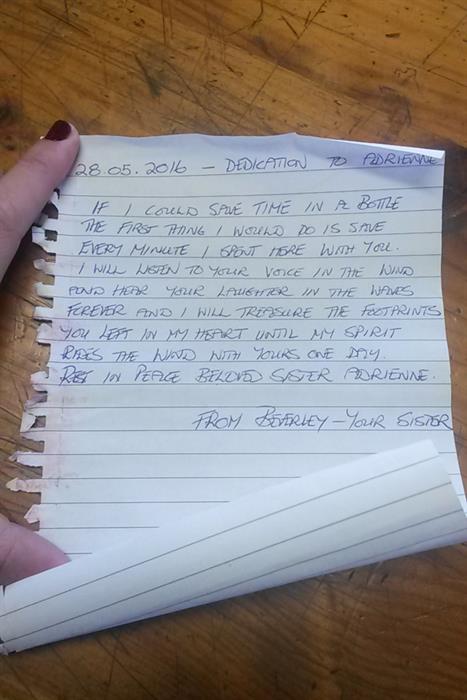 28.05.2016 – DEDICATION TO ADRIENNE
IF I COULD SAVE TIME IN A BOTTLE
THE FIRST THING I WOULD DO IS SAVE
EVERY MINUTE I SPENT HERE WITH YOU.
I WILL LISTEN TO YOUR VOICE IN THE WIND
AND HEAR YOUR LAUGHTER IN THE WAVES
FOREVER AND I WILL TREASURE THE FOOTPRINTS
YOU LEFT IN MY HEART UNTIL MY SPIRIT
RIDES THE WIND WITH YOURS ONE DAY.
REST IN PEACE BELOVED SISTER ADRIENNE.
FROM BEVERLEY – YOUR SISTER